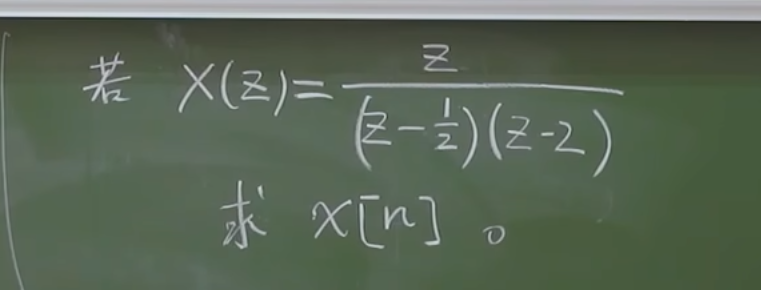 若 X(z)=z/((z-1/2)(z-2))
求 x[n]。